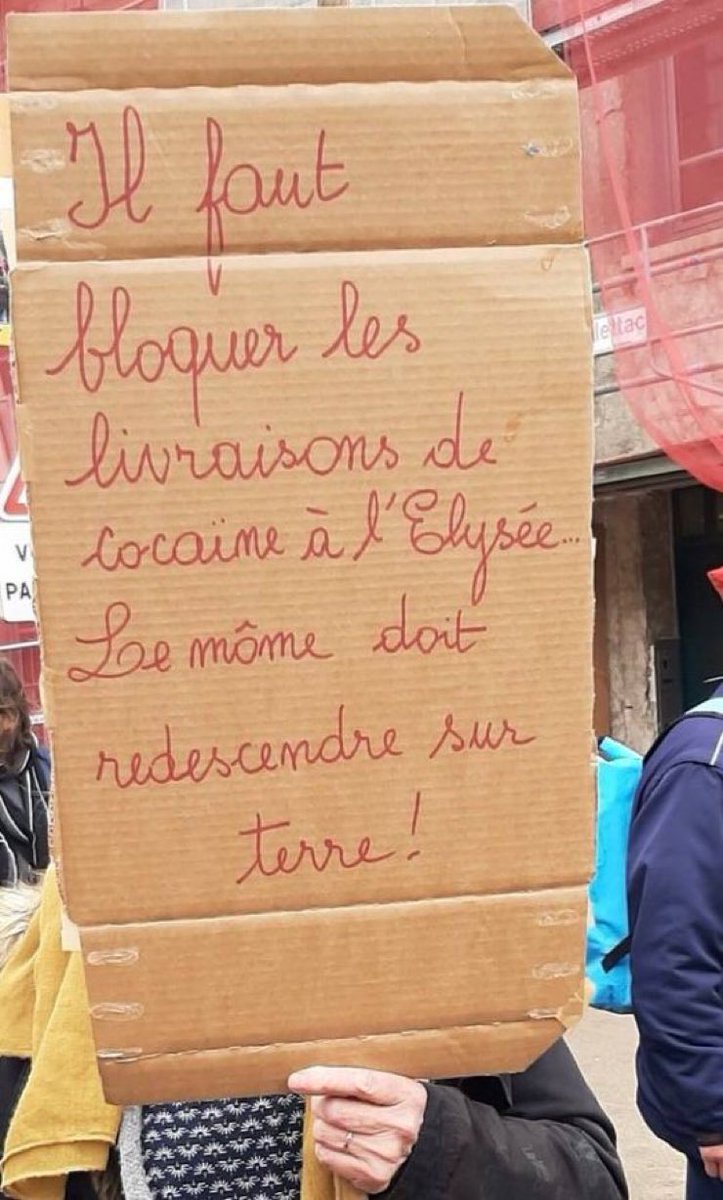 Il faut
bloquer les
livraisons de
cocaïne à l'Elysée...
Le môme doit
redescendre sur
terre!